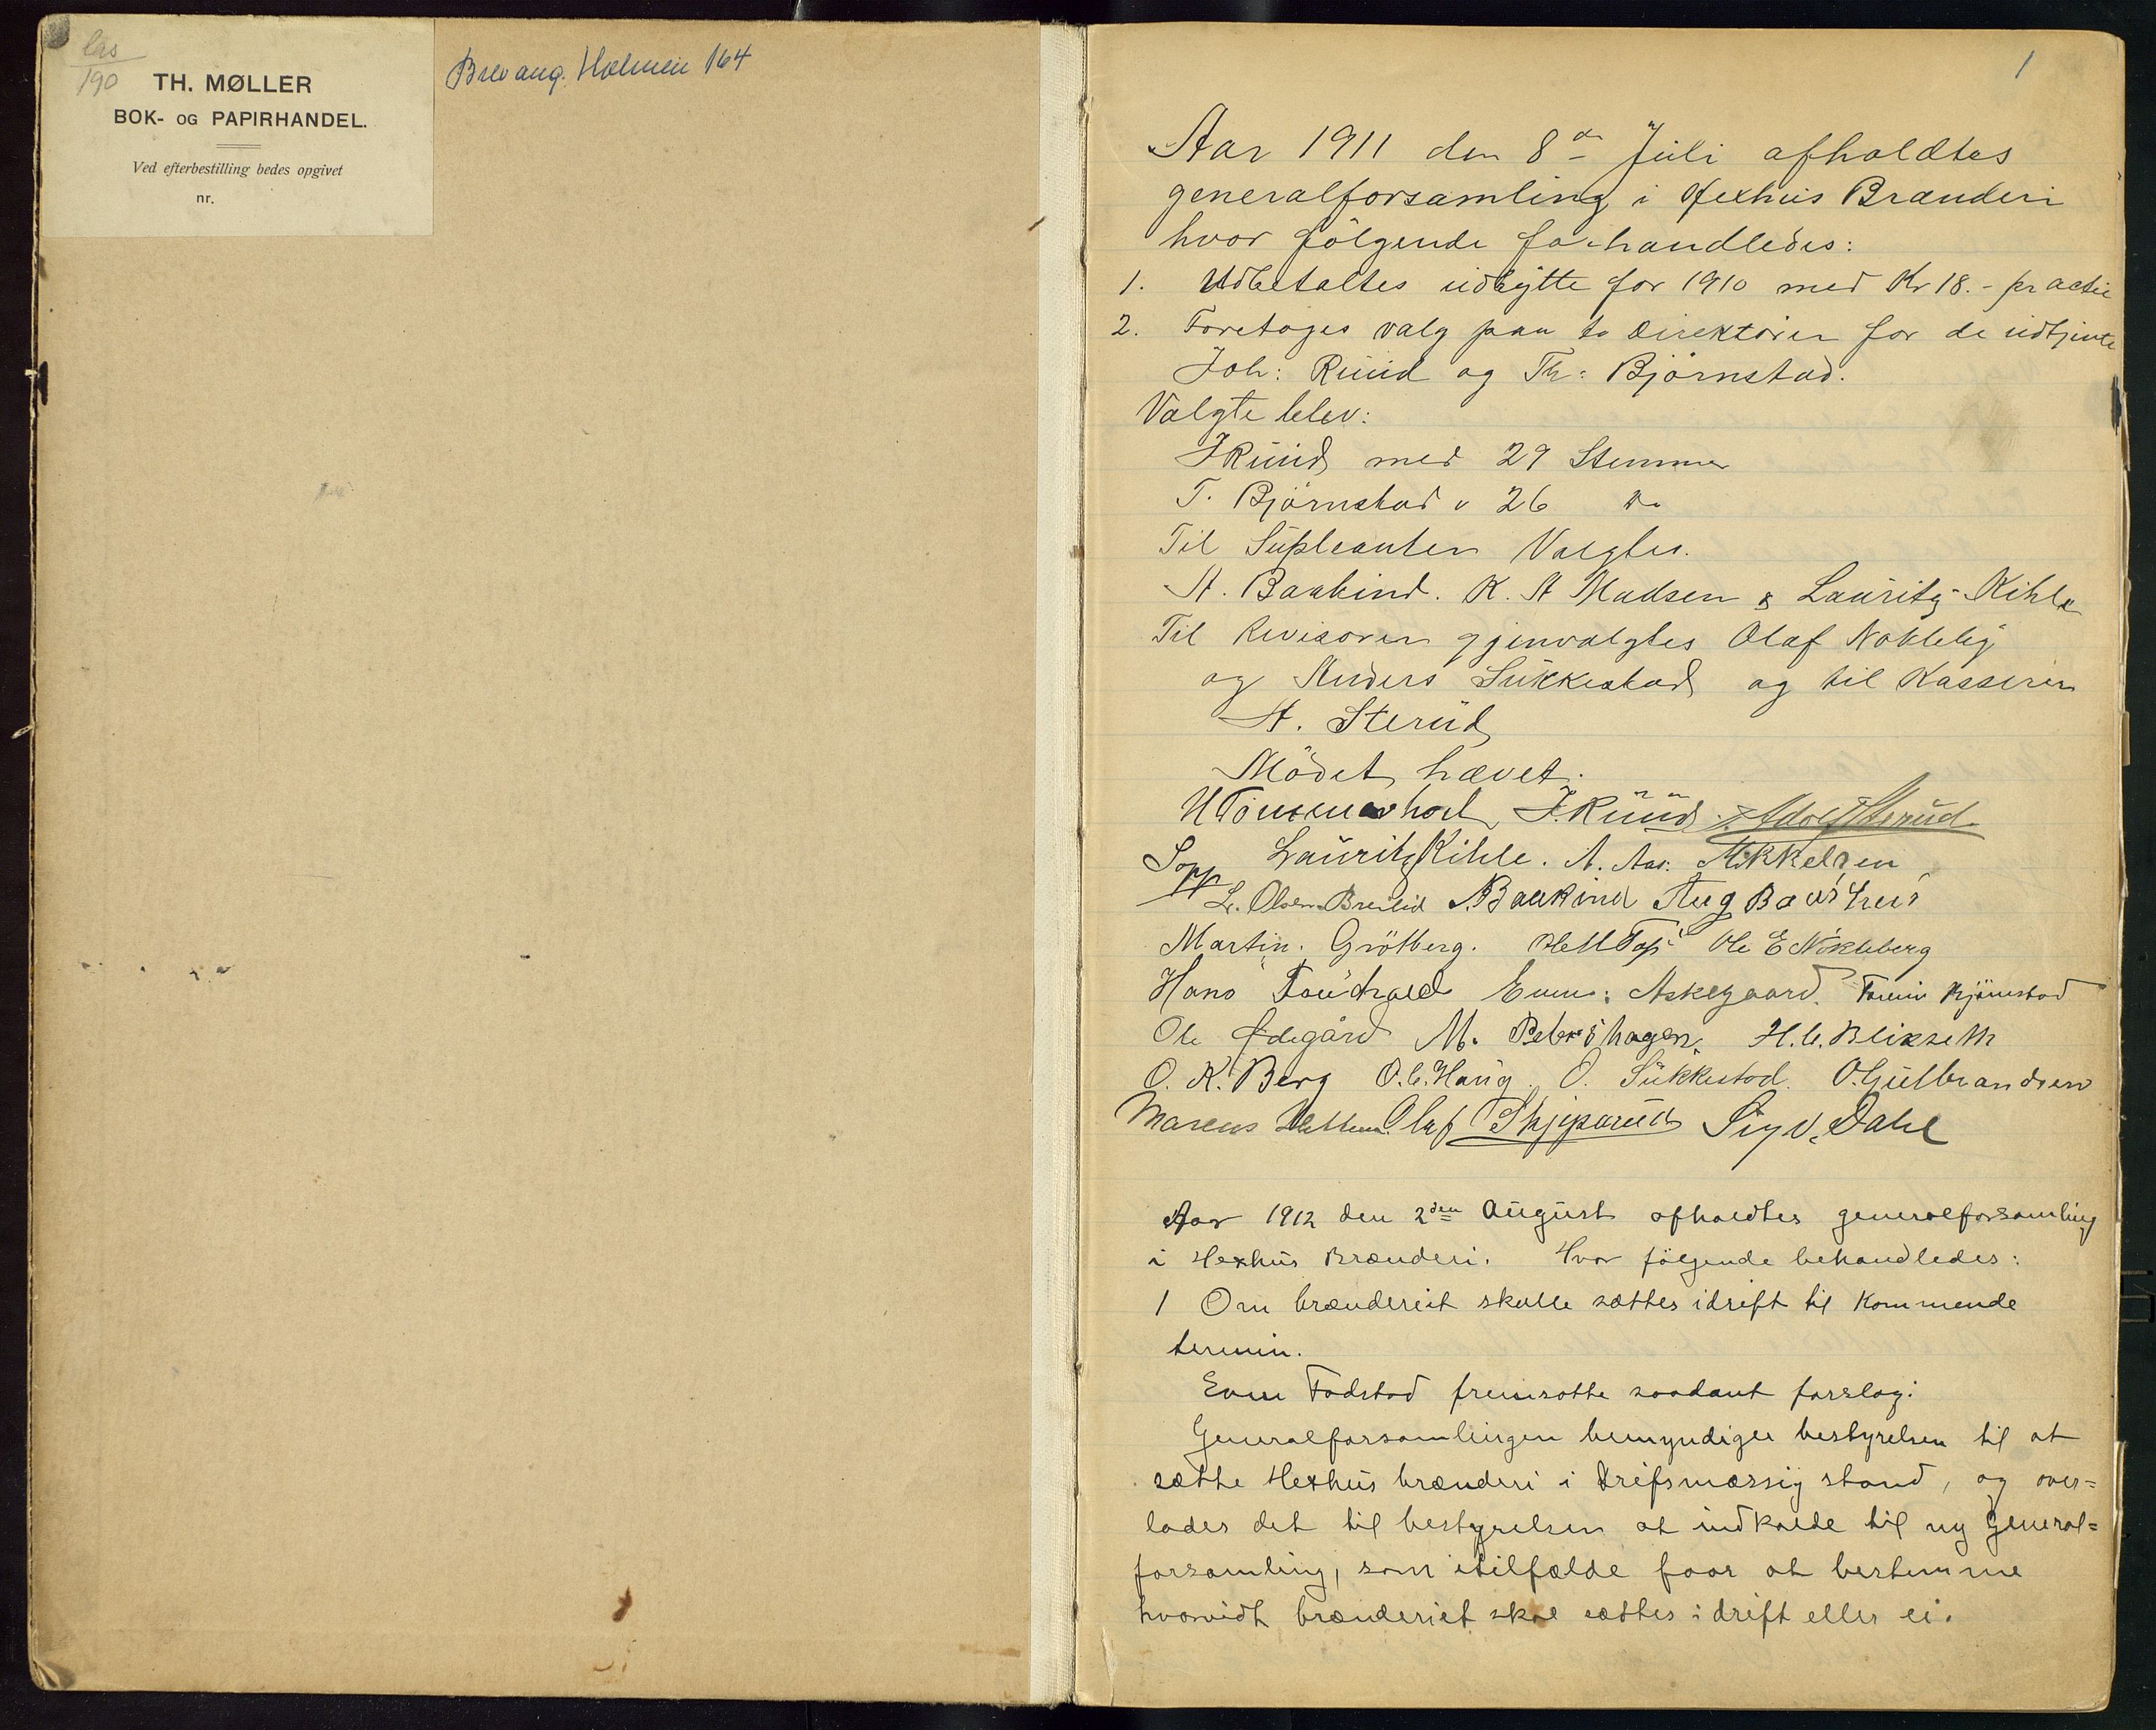 las
190
TH. MØLLER
BOK- OG PAPIRHANDEL.
Ved efterbestilling bedes opgivet
nr.
Brev ang. Holmen 164
1
Aar 1911 den 8de Juli afholdtes
generalforsamling i Hexhus Brænderi
hvor følgende forhandledes:
1. Udbetaltes udbytte for 1910 med Kr 18.- pr actie
2. Foretoges valg paa to Direktører for de udtjente
Joh: Ruud og Th: Bjørnstad.
Valgte blev:
J Ruud med 29 Stemmer
T. Bjørnstad " 26 do
Til Supleanter Valgtes.
A. Baukind. K. A Madsen & Lauritz Kihle
Til Revisorer gjenvalgtes Olaf Nøkleby
og Anders Sukkestad og til Kasserer
A. Sterud
Mødet hævet.
J. Ruud Adolf Sterud
Lauritz Kihle. A. Aas. Mikkelsen
Sopp L. Olsen Breilid Baukind Aug Baushus
Martin. Grøtberg. Ole E Nøkleberg
Hans Emm: Askegaard. Bjørnstad
Ole Ødegård M. Petershagen. H. C. Blikseth
O. K. Berg O. C. Haug. O. Sukkestad. O. Gulbrandsen
Marcus Olaf Skjeparud Sigv. Dahl
Aar 1912 den 2den August afholdtes generalforsamling
i Hexhus Brænderi. Hvor følgende behandledes:
1 Om brænderiet skulle sættes idrift til kommende
termin.
Even Fodstad fremsatte saadant forslag:
Generalforsamlingen bemyndiger bestyrelsen til at
sætte Hexhus brænderi i drifsmæssig stand, og over=
lades det til bestyrelsen at indkalde til ny General=
forsamling, som itilfælde faar at bestemme
hvorvidt brænderiet skal sættes i drift eller ei.